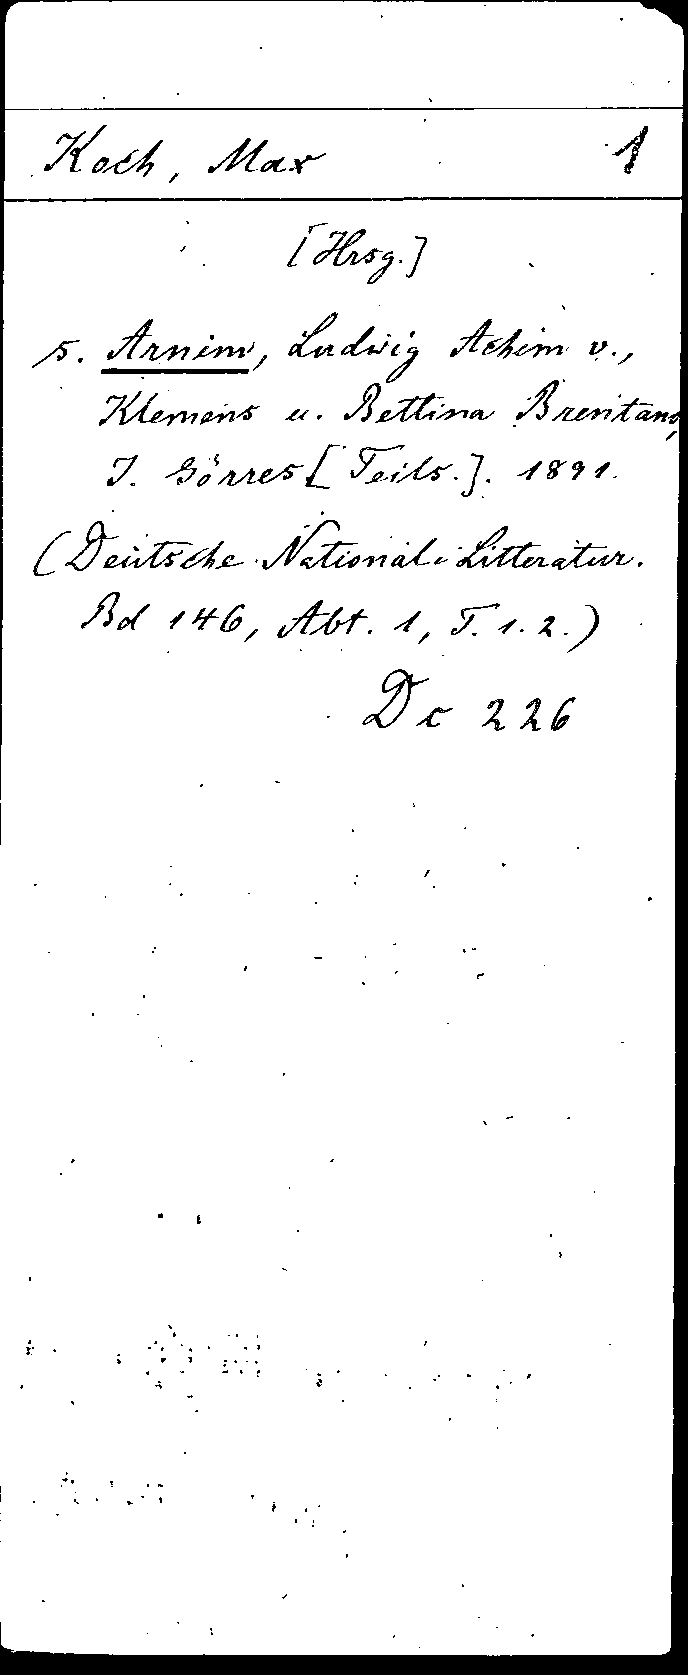 Koch, Max 1
[Hrsg.]
s. Arnim, Ludwig Achim v.,
Klemens u. Bettina Brentano,
J. Görres [Teils.]. 1891.
(Deutsche National-Litteratur.
Bd 146, Abt. 1, T. 1. 2.)
Dc 226